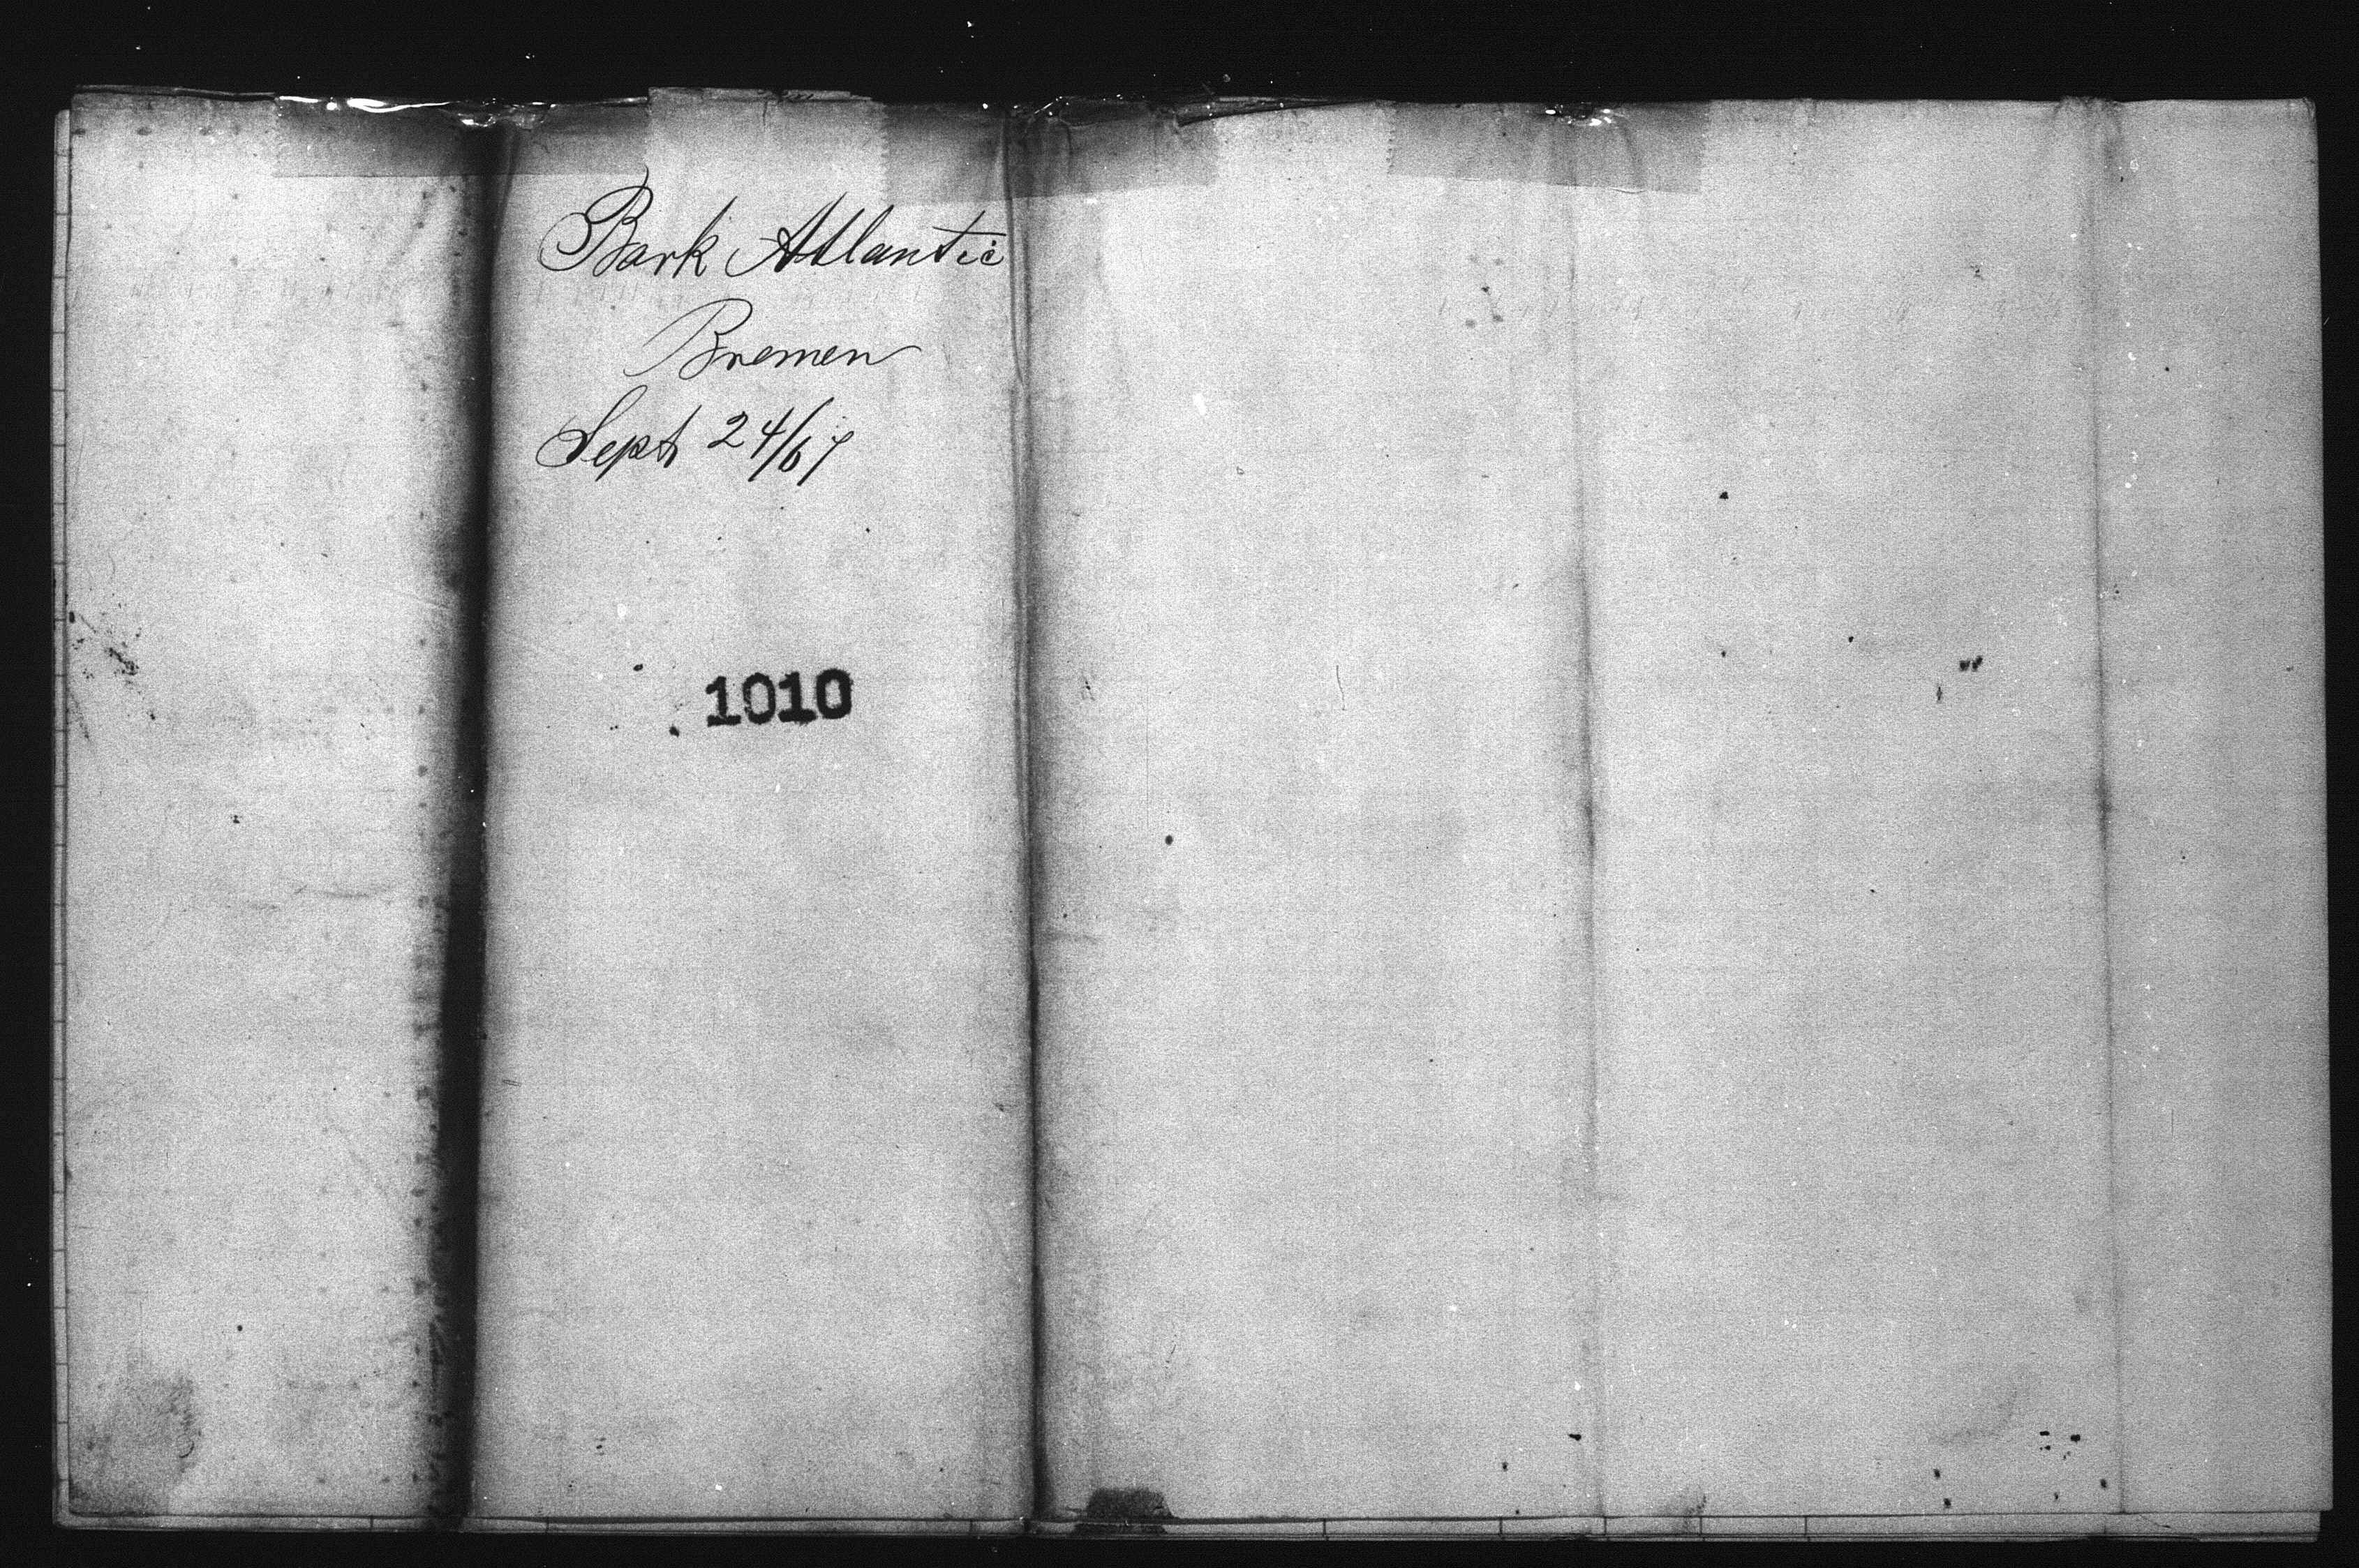 Bark Atlantic
Bremen
Sept 24/67
1010